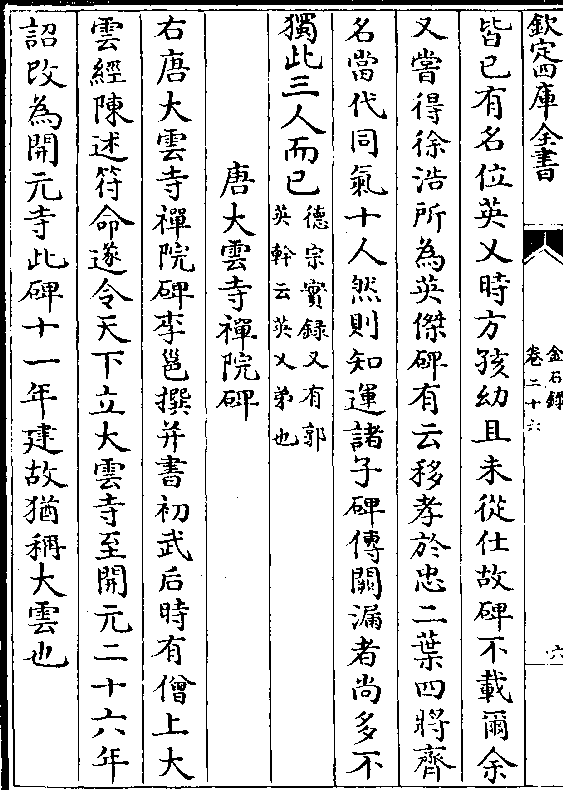 欽定四庫全書
金石録
卷二十六
六
皆已有名位英乂時方孩幼且未從仕故碑不載爾余
又嘗得徐浩所為英傑碑有云移孝於忠二葉四將齊
名當代同氣十人然則知運諸子碑傳闕漏者尚多不
獨此三人而已
德宗實録又有郭
英幹云英乂弟也
唐大雲寺禪院碑
右唐大雲寺禪院碑李邕撰并書初武后時有僧上大
雲經陳述符命遂令天下立大雲寺至開元二十六年
詔改為開元寺此碑十一年建故猶稱大雲也